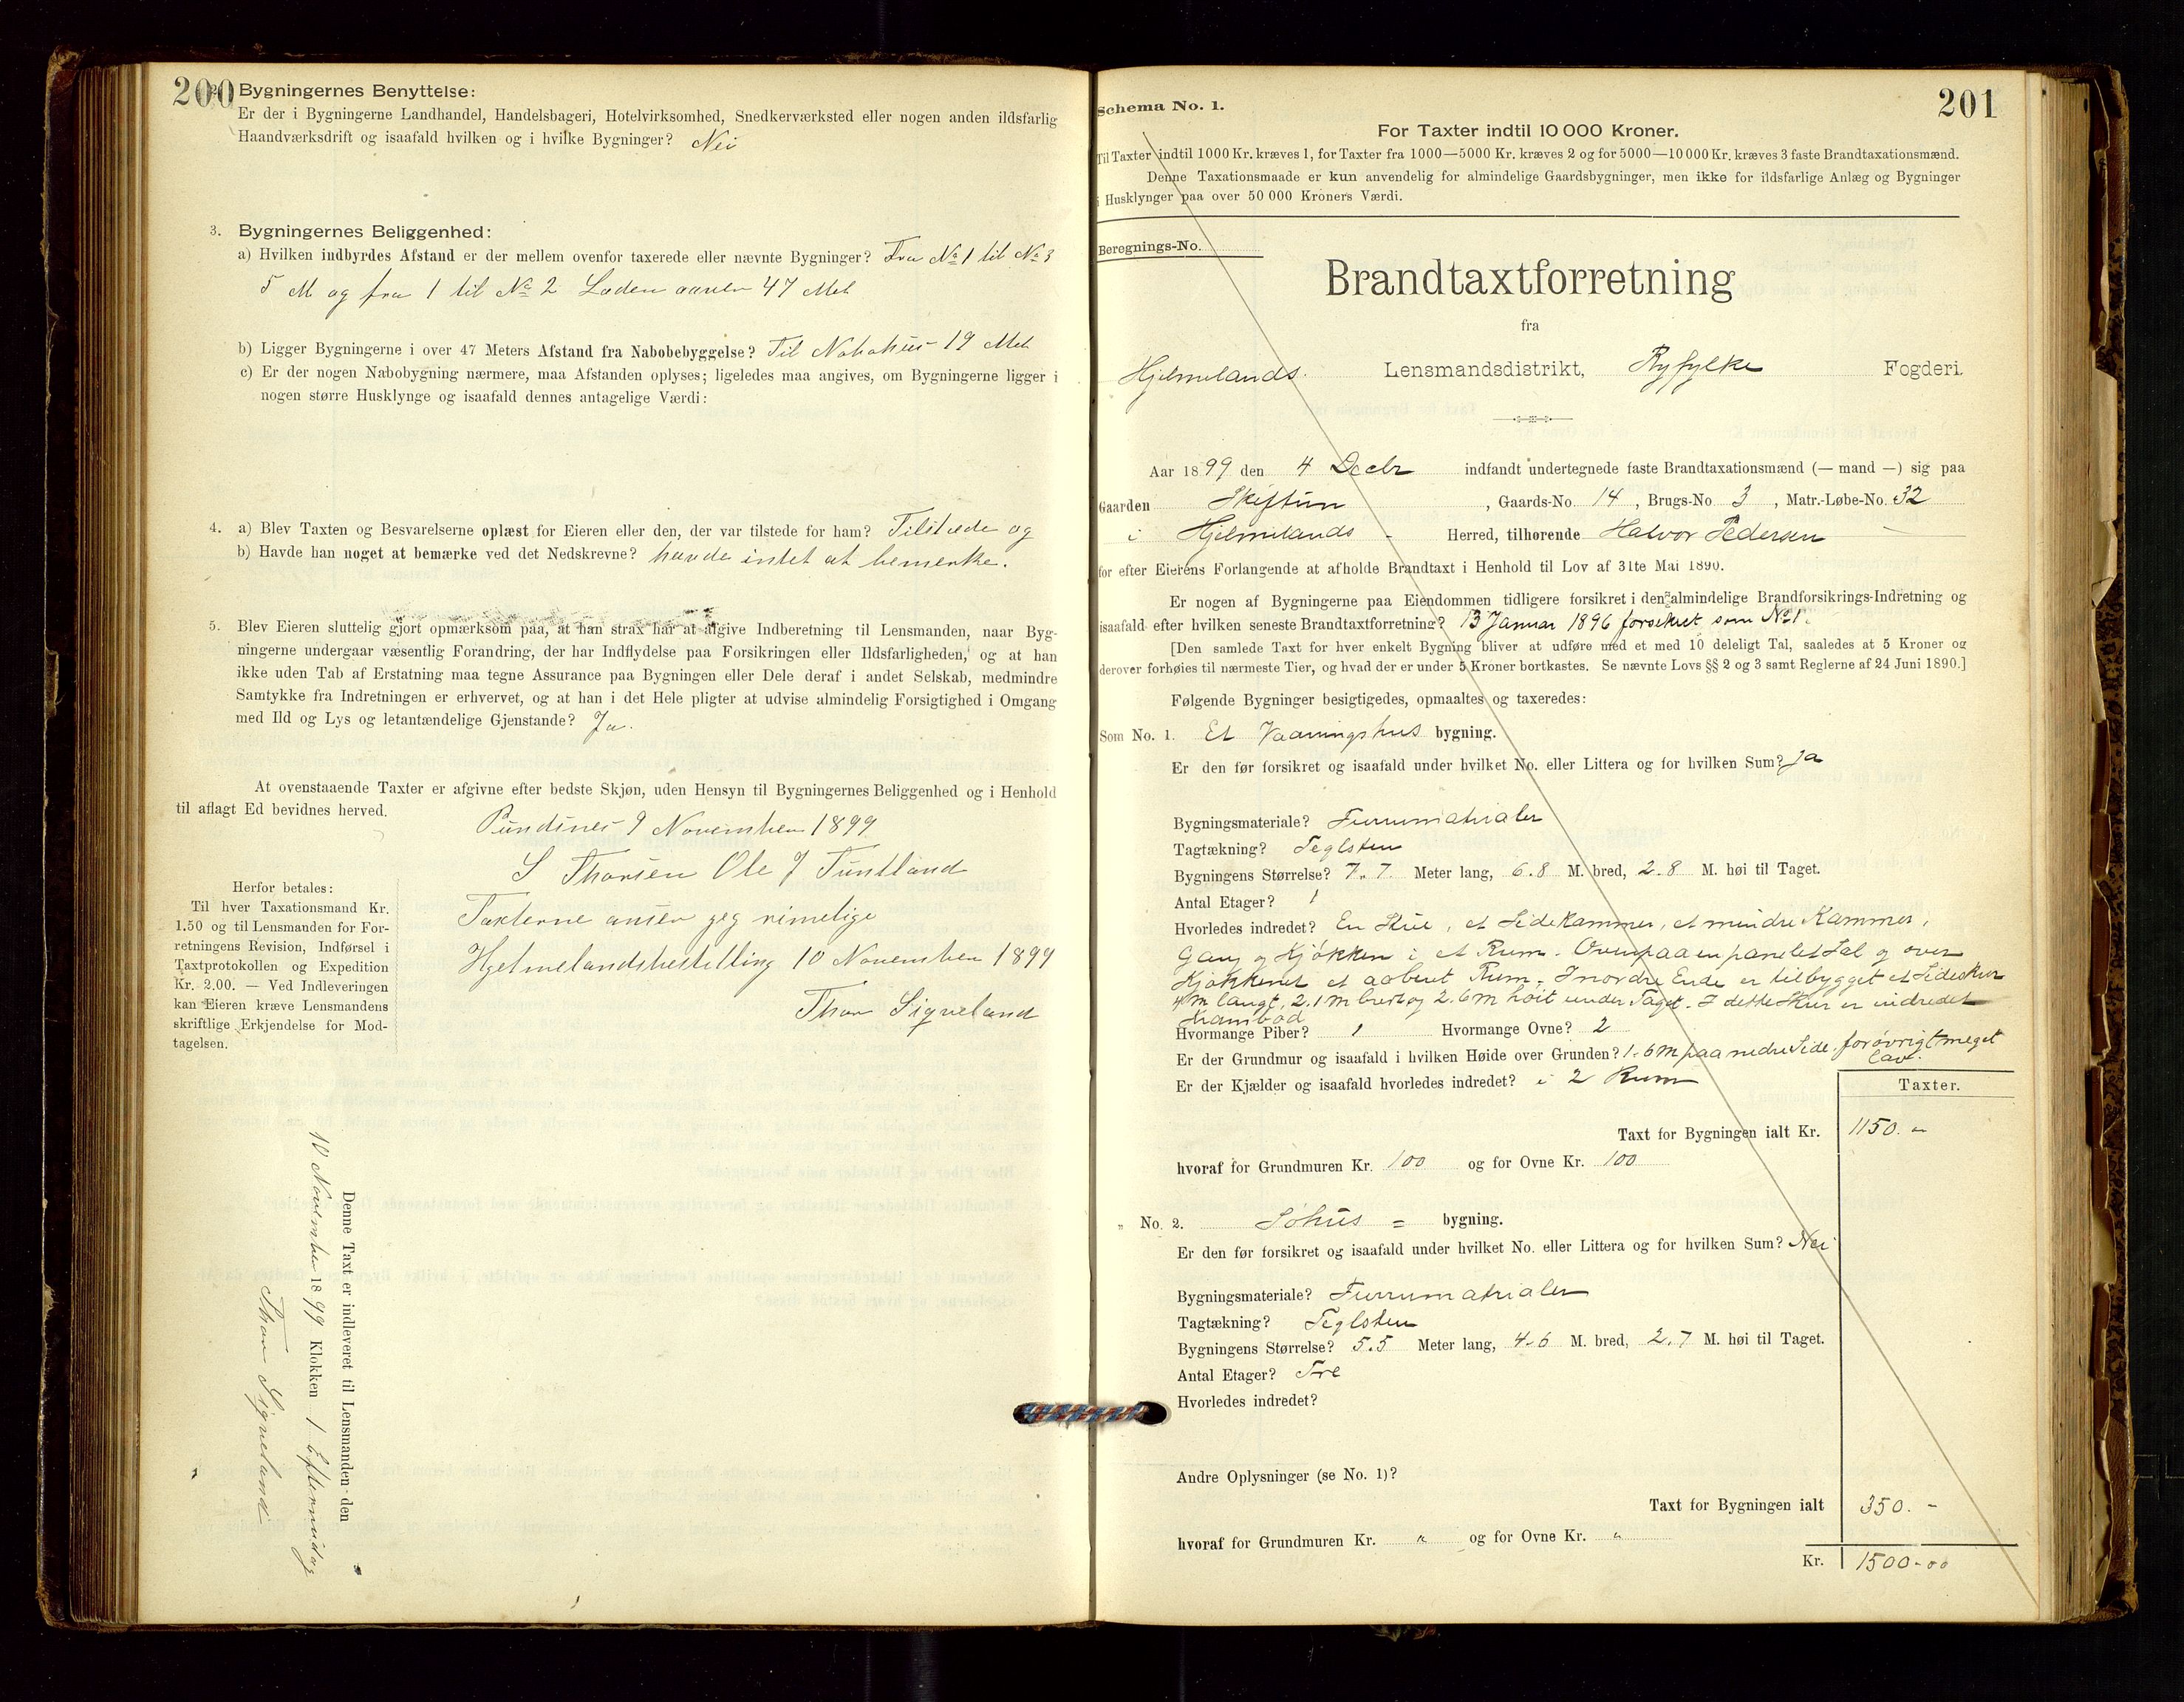 200
Bygningernes Benyttelse:
Er der i Bygningerne Landhandel, Handelsbageri, Hotelvirksomhed, Snedkerværksted eller nogen anden ildsfarlig
Haandværksdrift og isaafald hvilken og i hvilke Bygninger? Nei
3. Bygningernes Beliggenhed:
a) Hvilken indbyrdes Afstand er der mellem ovenfor taxerede eller nævnte Bygninger? Fra No 1 til No 3
5 M og fra 1 til No 2 Laden 47 Met
b) Ligger Bygningerne i over 47 Meters Afstand fra Nabobebyggelse? Til Nabohus 19 Met
c) Er der nogen Nabobygning nærmere, maa Afstanden oplyses; ligeledes maa angives, om Bygningerne ligger i
nogen større Husklynge og isaafald dennes antagelige Værdi:
4. a) Blev Taxten og Besvarelserne oplæst for Eieren eller den, der var tilstede for ham? Tilstæde og
b) Havde han noget at bemærke ved det Nedskrevne? havde intet at bemerke.
5. Blev Eieren sluttelig gjort opmærksom paa, at han strax har at afgive Indberetning til Lensmanden, naar Byg-
ningerne undergaar væsentlig Forandring, der har Indflydelse paa Forsikringen eller Ildsfarligheden, og at han
ikke uden Tab af Erstatning maa tegne Assurance paa Bygningen eller Dele deraf i andet Selskab, medmindre
Samtykke fra Indretningen er erhvervet, og at han i det Hele pligter at udvise almindelig Forsigtighed i Omgang
med Ild og Lys og letantændelige Gjenstande? Ja.
At ovenstaaende Taxter er afgivne efter bedste Skjøn, uden Hensyn til Bygningernes Beliggenhed og i Henhold
til aflagt Ed bevidnes herved.
Pundsnes 9 November 1899
S Thorsen Ole J Tuntland
Taxterne anser jeg rimelige
Hjelmelandsbestilling 10 November 1899
Thor Sigveland
Herfor betales:
Til hver Taxationsmand Kr.
1.50 og til Lensmanden for For-
retningens Revision, Indførsel i
Taxtprotokollen og Expedition
Kr. 2.00. — Ved Indleveringen
kan Eieren kræve Lensmandens
skriftlige Erkjendelse for Mod-
tagelsen.
Denne Taxt er indleveret til Lensmanden den
10 November 1899 Klokken 1 Eftermidag
Thor Sigveland
Schema No. 1.
201
For Taxter indtil 10 000 Kroner.
Til Taxter indtil 1000 Kr. kræves 1, for Taxter fra 1000—5000 Kr. kræves 2 og for 5000—10 000 Kr. kræves 3 faste Brandtaxationsmænd.
Denne Taxationsmaade er kun anvendelig for almindelige Gaardsbygninger, men ikke for ildsfarlige Anlæg og Bygninger
i Husklynger paa over 50 000 Kroners Værdi.
Beregnings-No.
Brandtaxtforretning
fra
Hjelmelands Lensmandsdistrikt, Ryfylke Fogderi.
Aar 1899 den 4 Decbr indfandt undertegnede faste Brandtaxationsmænd (— mand —) sig paa
Gaarden Skiftun, Gaards-No. 14, Brugs-No 3, Matr.-Løbe-No. 32
i Hjelmelands Herred, tilhørende Halvor Pedersen
for efter Eierens Forlangende at afholde Brandtaxt i Henhold til Lov af 31te Mai 1890.
Er nogen af Bygningerne paa Eiendommen tidligere forsikret i den almindelige Brandforsikrings-Indretning og
isaafald efter hvilken seneste Brandtaxtforretning? 13 Januar 1896 forsikret som No 1.
[Den samlede Taxt for hver enkelt Bygning bliver at udføre med et med 10 deleligt Tal, saaledes at 5 Kroner og
derover forhøies til nærmeste Tier, og hvad der er under 5 Kroner bortkastes. Se nævnte Lovs §§ 2 og 3 samt Reglerne af 24 Juni 1890.]
Følgende Bygninger besigtigedes, opmaaltes og taxeredes:
Som No. 1. Et Vaaningshus bygning.
Er den før forsikret og isaafald under hvilket No. eller Littera og for hvilken Sum? Ja
Bygningsmateriale? Furumatrialer
Tagtækning? Teglsten
Bygningens Størrelse? 7.7 Meter lang, 6.8 M. bred, 2.8 M. høi til Taget.
Antal Etager? 1
Hvorledes indredet? En Stue, et Sidekammer, et mindre Kammer,
Gang og Kjøkken i et Rum. Ovenpaa en panelet Sal og over
Kjøkkenet et aabent Rum. I nordre Ende er tilbygget et Sideskur
4 m langt, 2.1 m bredt og 2.6 m høit under Taget. I dette Skur er indredet
Hvormange Piber? 1 Hvormange Ovne? 2
Er der Grundmur og isaafald i hvilken Høide over Grunden? 1.6 m paa nedre Side, forøvrigt meget
lav.
Er der Kjælder og isaafald hvorledes indredet? i 2 Rum
Taxter.
Taxt for Bygningen ialt Kr. 1150. -
hvoraf for Grundmuren Kr. 100 og for Ovne Kr. 100
" No. 2. Søhus = bygning.
Er den før forsikret og isaafald under hvilket No. eller Littera og for hvilken Sum? Nei
Bygningsmateriale? Furumatrialer
Tagtækning? Teglsten
Bygningens Størrelse? 5.5 Meter lang, 4.6 M. bred, 2.7 M. høi til Taget.
Antal Etager? Tre
Hvorledes indredet?
Andre Oplysninger (se No. 1)?
Taxt for Bygningen ialt 350. -
hvoraf for Grundmuren Kr. " og for Ovne Kr. "
Kr. 1500-00